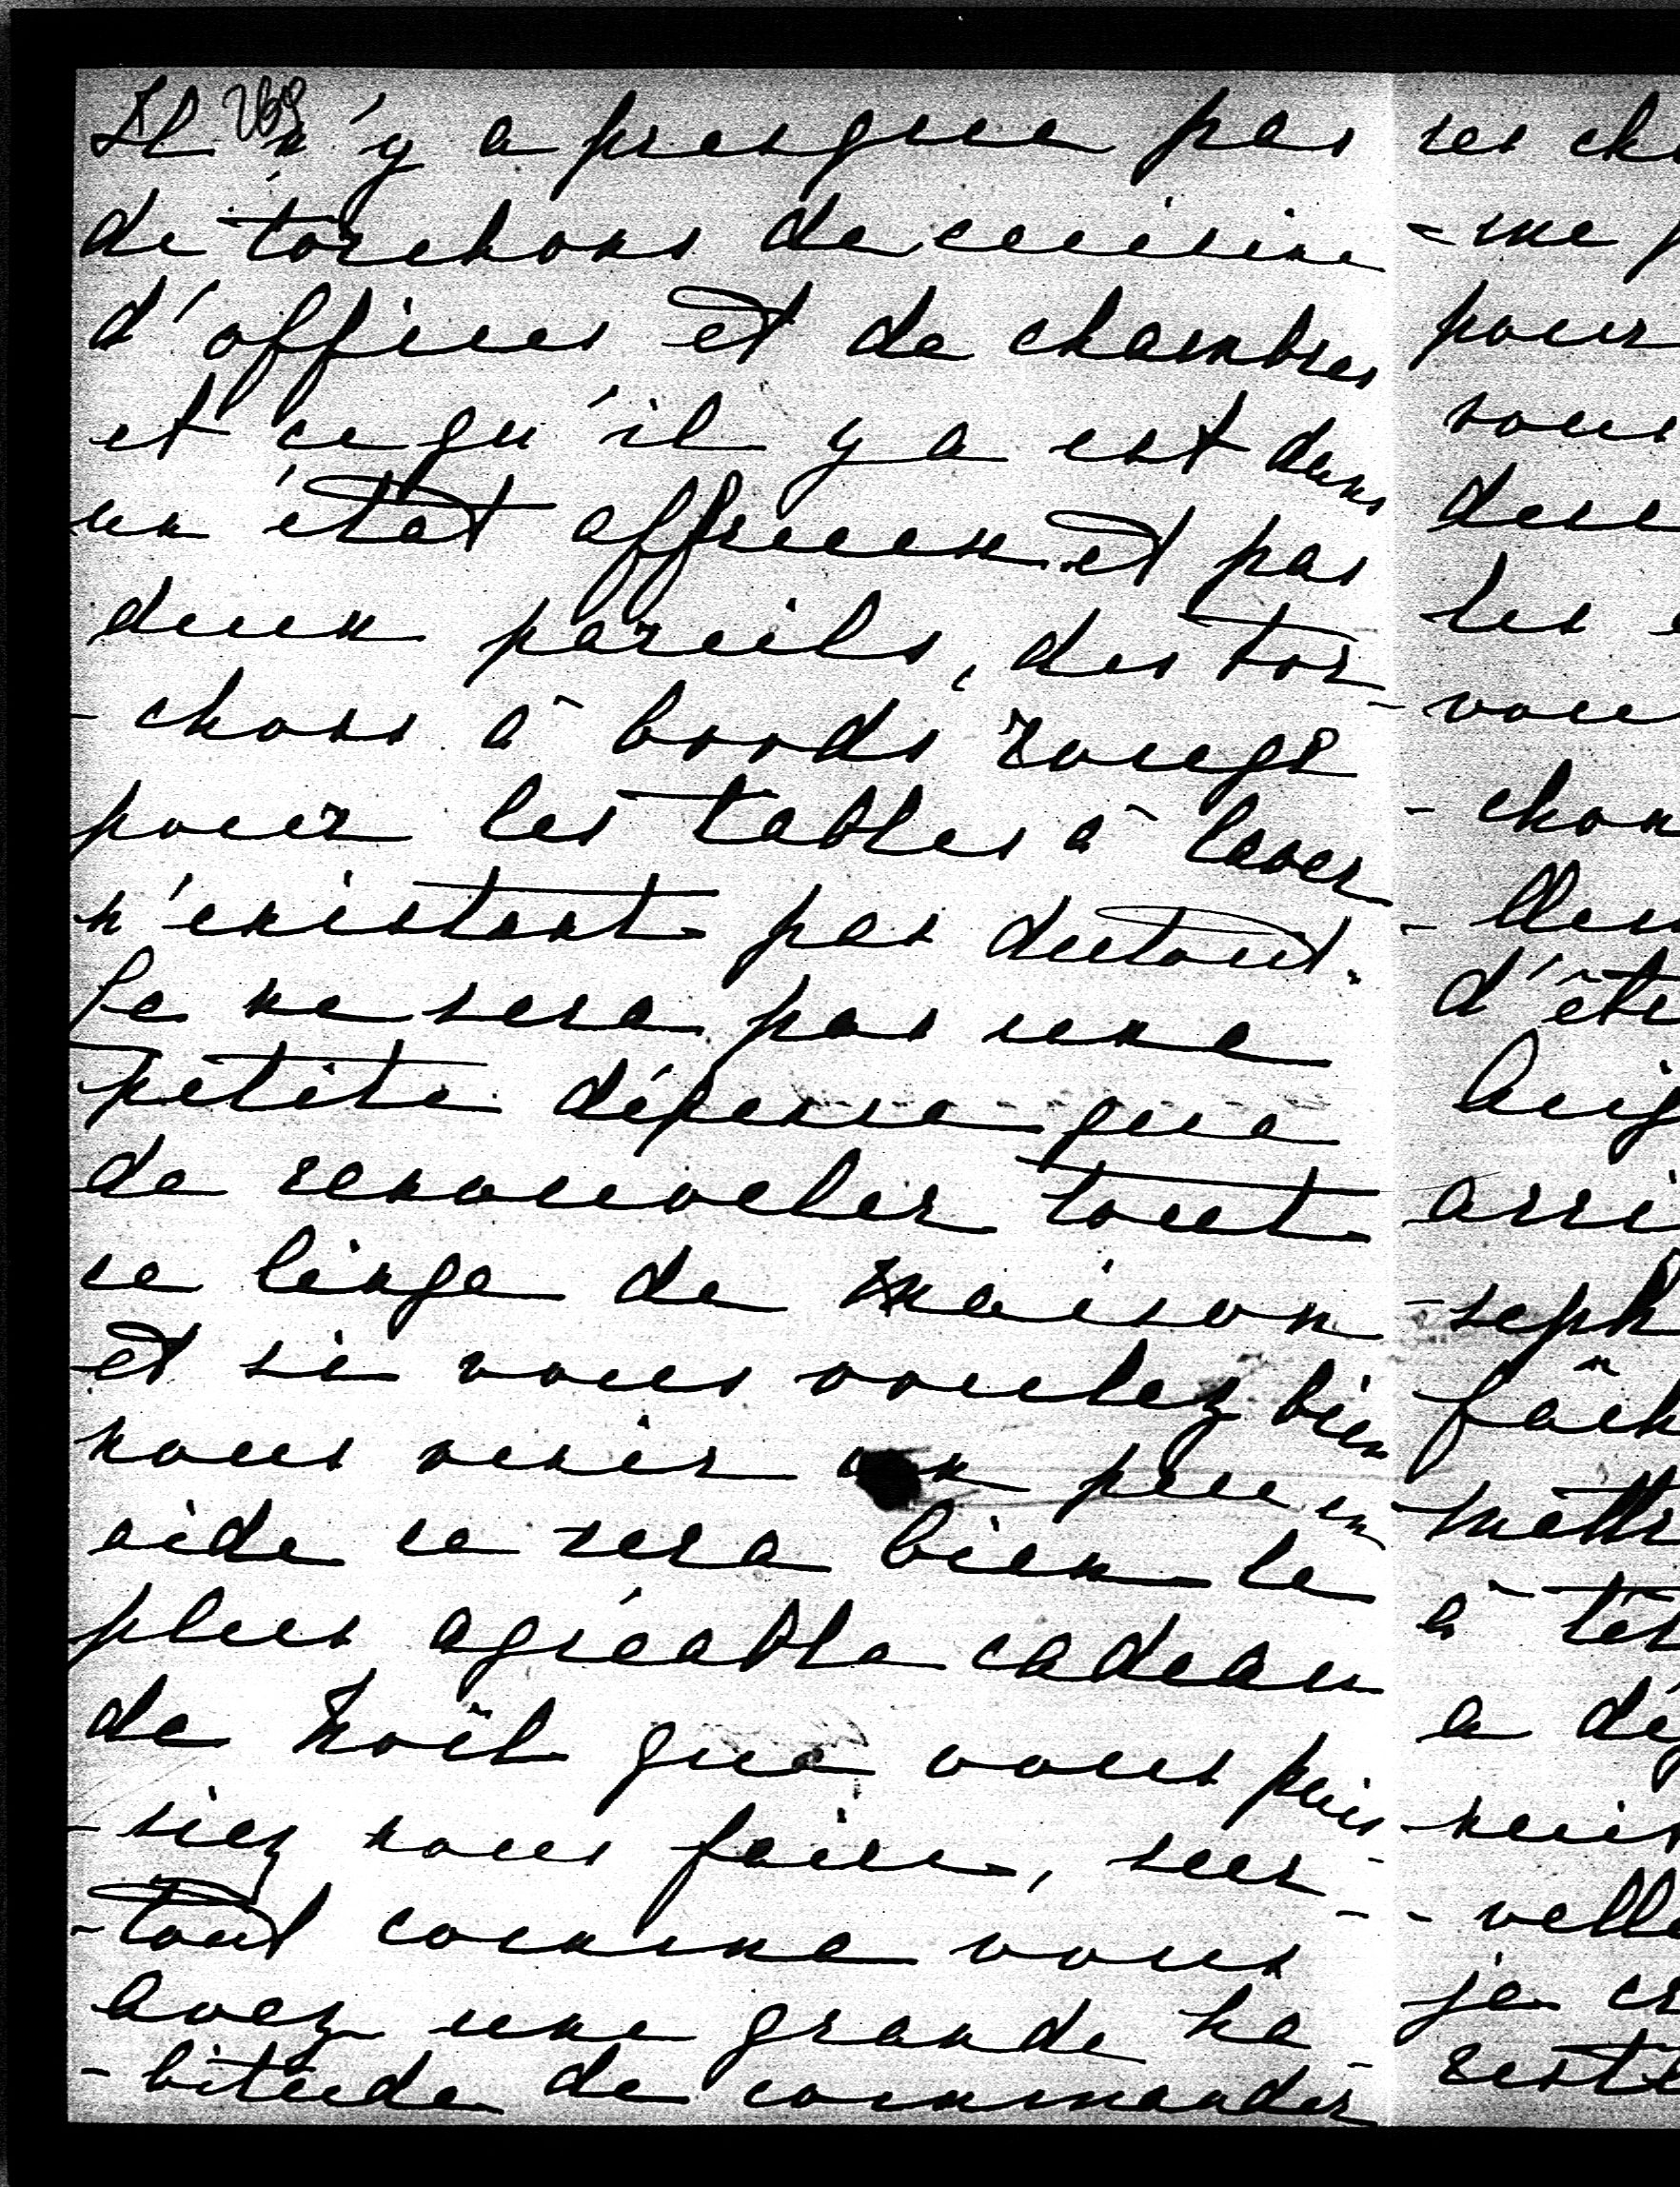 269
Il n'y a presque pas
de torchons de cuisine
d'offices et de chambres
et ce qu'il y a est dans
un état affreux et pas
deux pareils, des tor-
-chons à bords rouge
pour les tables à laver
n'existent pas dutout.
Ce ne sera pas une
petite dépense que
de renouveler tout
ce linge de maison
et si vous voulez bien
nous venir un peu en
aide ce sera bien le
plus agréable cadeau
de Noël que vous puis-
-siez nous faire, sur-
-tout comme vous
avez une grande ha-
-bitude de commander
ses
-me
pour
sous
les
d'êt
arri
-seph
mettr
à
a
-velle
je